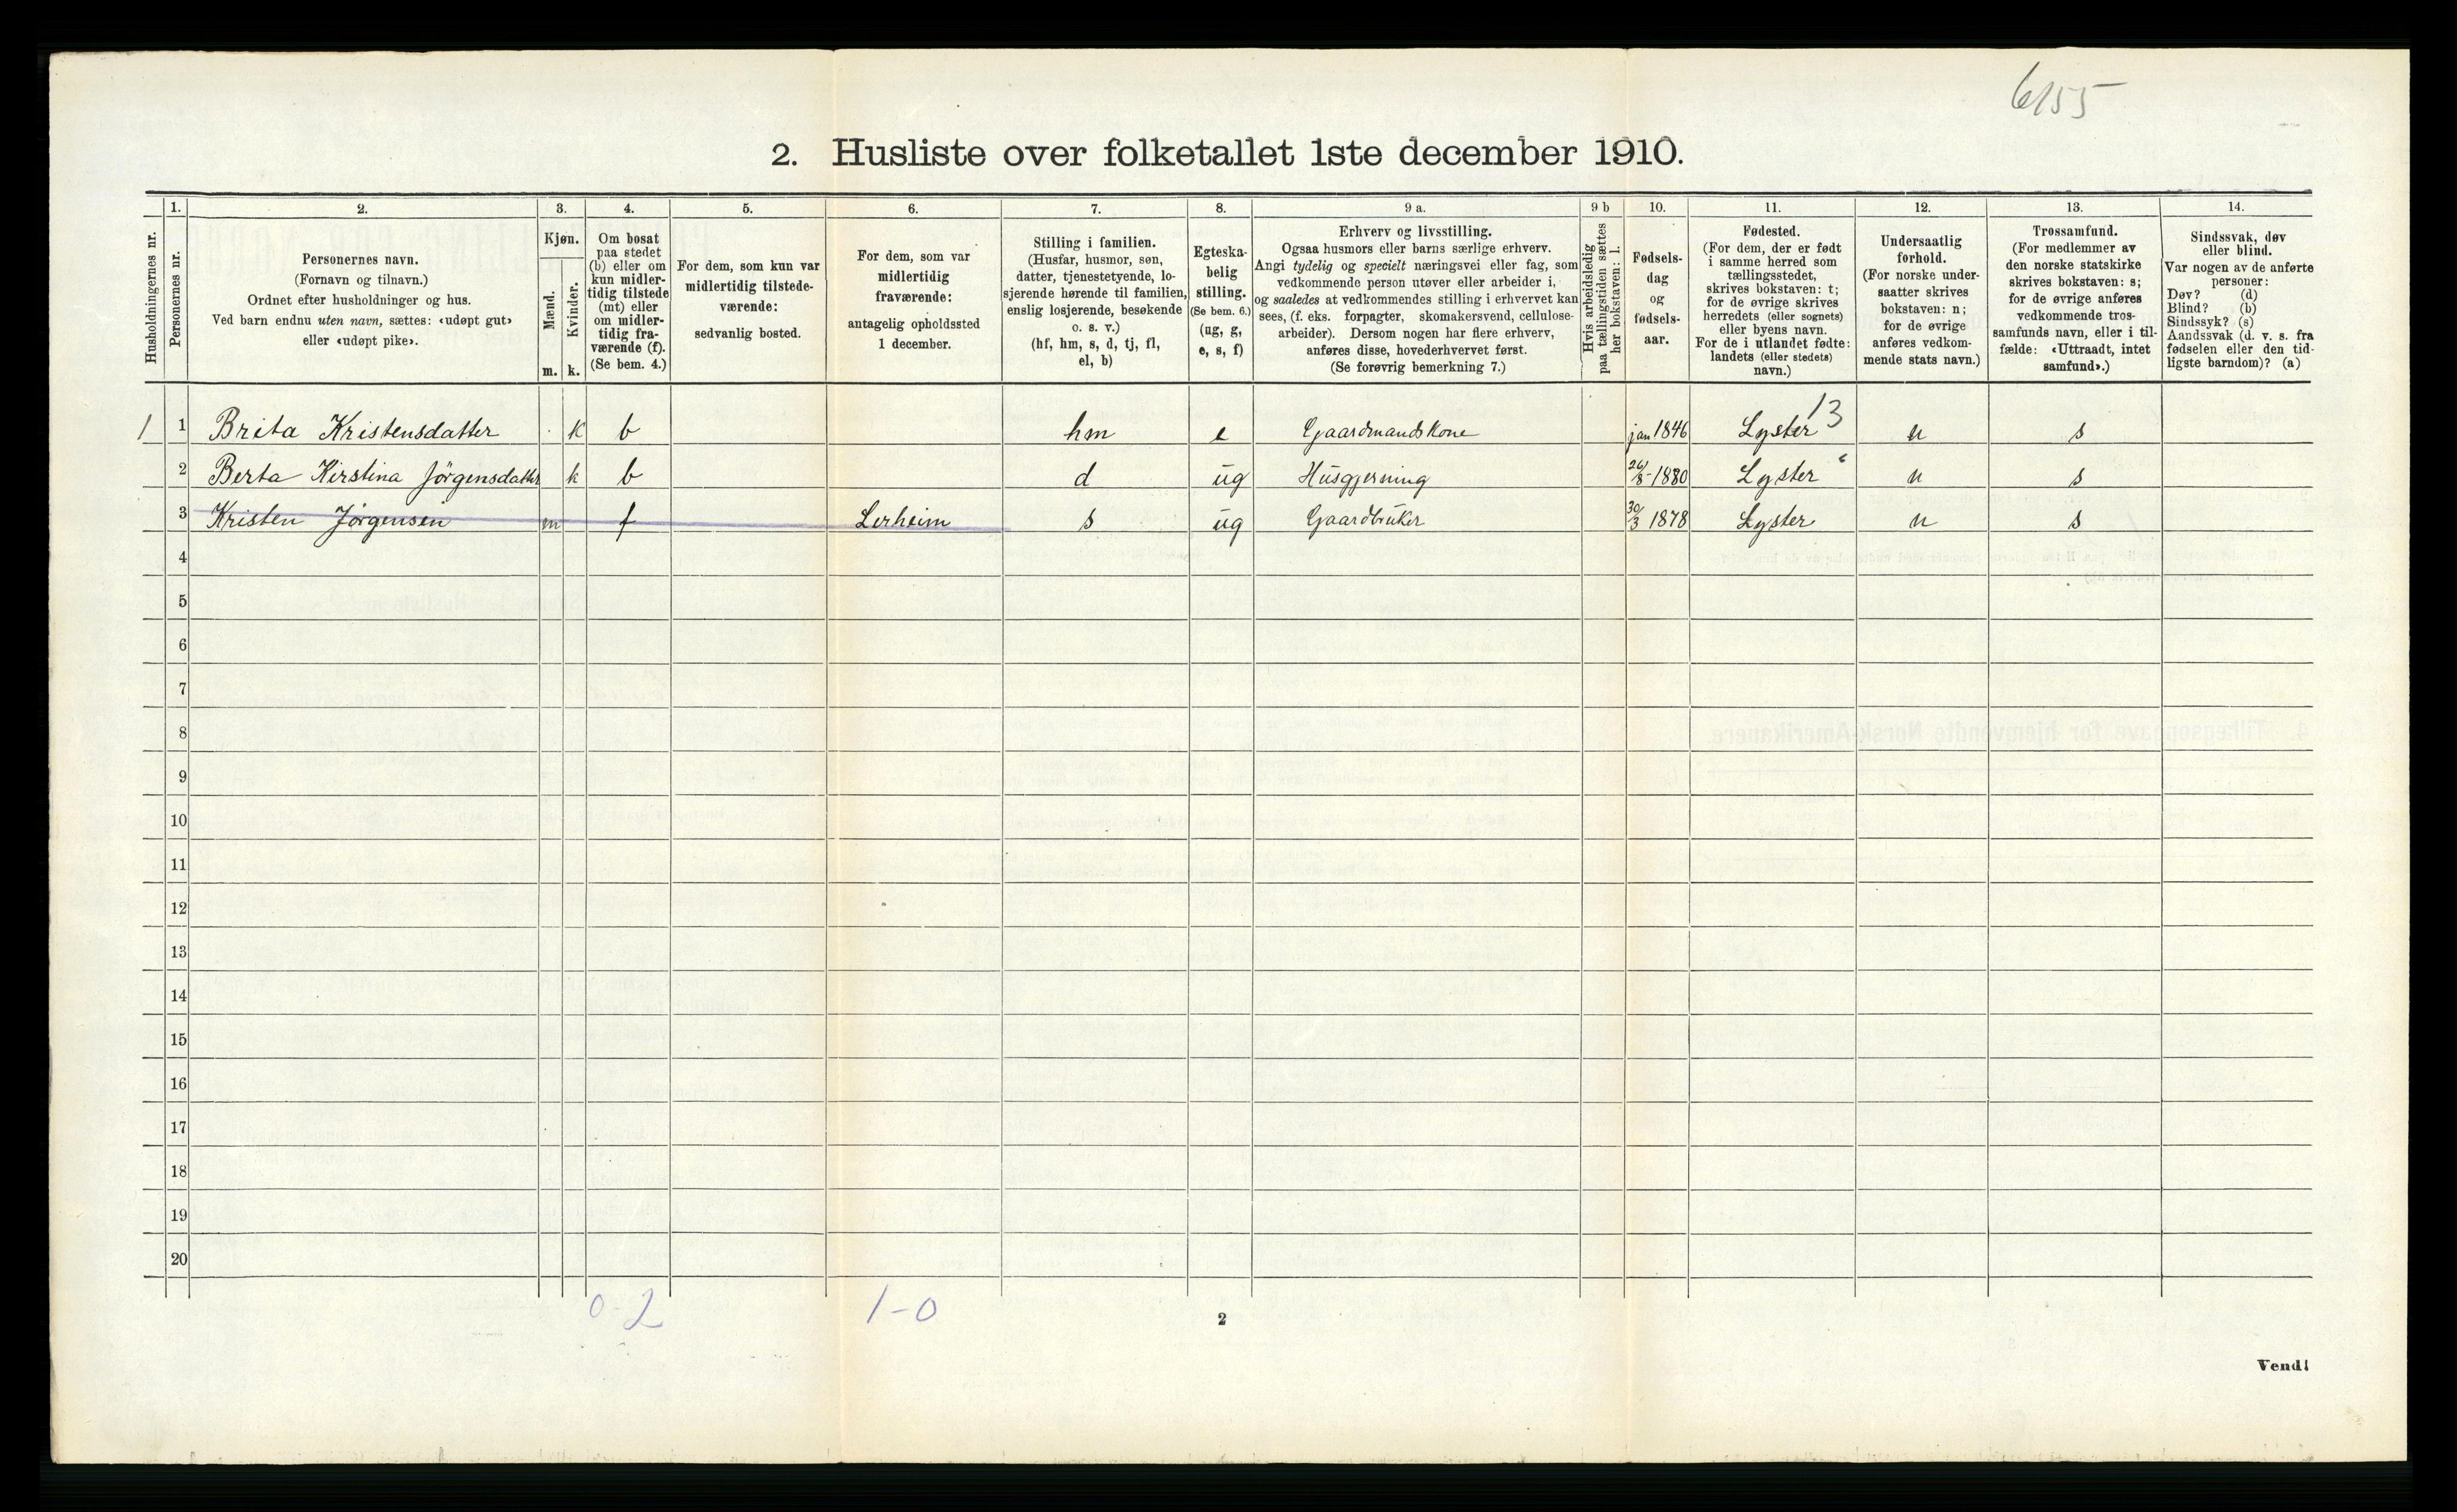 6155
2. Husliste over folketallet 1ste december 1910.
Husholdningernes nr.
1.
Personernes nr.
2.
Personernes navn.
(Fornavn og tilnavn.)
Ordnet efter husholdninger og hus.
Ved barn endnu uten navn, sættes: «udøpt gut»
eller «udøpt pike».
3.
Kjøn.
Mænd.
m.
Kvinder.
k.
4.
Om bosat
paa stedet
(b) eller om
kun midler-
tidig tilstede
(mt) eller
om midler-
tidig fra-
værende (f).
(Se bem. 4.)
5.
For dem, som kun var
midlertidig tilstede-
værende:
sedvanlig bosted.
6.
For dem, som var
midlertidig
fraværende:
antagelig opholdssted
1 december.
7.
Stilling i familien.
(Husfar, husmor, søn,
datter, tjenestetyende, lo-
sjerende hørende til familien,
enslig losjerende, besøkende
o. s. v.)
(hf, hm, s, d, tj, fl,
el, b)
8.
Egteska-
belig
stilling.
(Se bem. 6.)
(ug, g,
e, s, f)
9 a.
Erhverv og livsstilling.
Ogsaa husmors eller barns særlige erhverv.
Angi tydelig og specielt næringsvei eller fag, som
vedkommende person utøver eller arbeider i,
og saaledes at vedkommendes stilling i erhvervet kan
sees, (f. eks. forpagter, skomakersvend, cellulose-
arbeider). Dersom nogen har flere erhverv,
anføres disse, hovederhvervet først.
(Se forøvrig bemerkning 7.)
9 b
Hvis arbeidsledig
paa tællingstiden sættes
her bokstaven: l.
10.
Fødsels-
dag
og
fødsels-
aar.
11.
Fødested.
(For dem, der er født
i samme herred som
tællingsstedet,
skrives bokstaven: t;
for de øvrige skrives
herredets (eller sognets)
eller byens navn.
For de i utlandet fødte:
landets (eller stedets)
navn.)
12.
Undersaatlig
forhold.
(For norske under-
saatter skrives
bokstaven: n;
for de øvrige
anføres vedkom-
mende stats navn.)
13.
Trossamfund.
(For medlemmer av
den norske statskirke
skrives bokstaven: s;
for de øvrige anføres
vedkommende tros-
samfunds navn, eller i til-
fælde: «Uttraadt, intet
samfund».)
14.
Sindssvak, døv
eller blind.
Var nogen av de anførte
personer:
Døv? (d)
Blind? (b)
Sindssyk? (s)
Aandssvak (d. v. s. fra
fødselen eller den tid-
ligste barndom)? (a)
13
1 1 Brita Kristensdatter k b hm e Gaardmandskone jan 1846 Lyster n s
2 Berta Kirstina Jörgensdatter k b d ug Husgjerning 26/8-1880 Lyster n s
3 Kristen Jörgensen m f Lerheim s ug Gaardbruker 30/3 1878 Lyster n s
4
5
6
7
8
9
10
11
12
13
14
15
16
17
18
19
20
0-2 1-0
2
Vend!